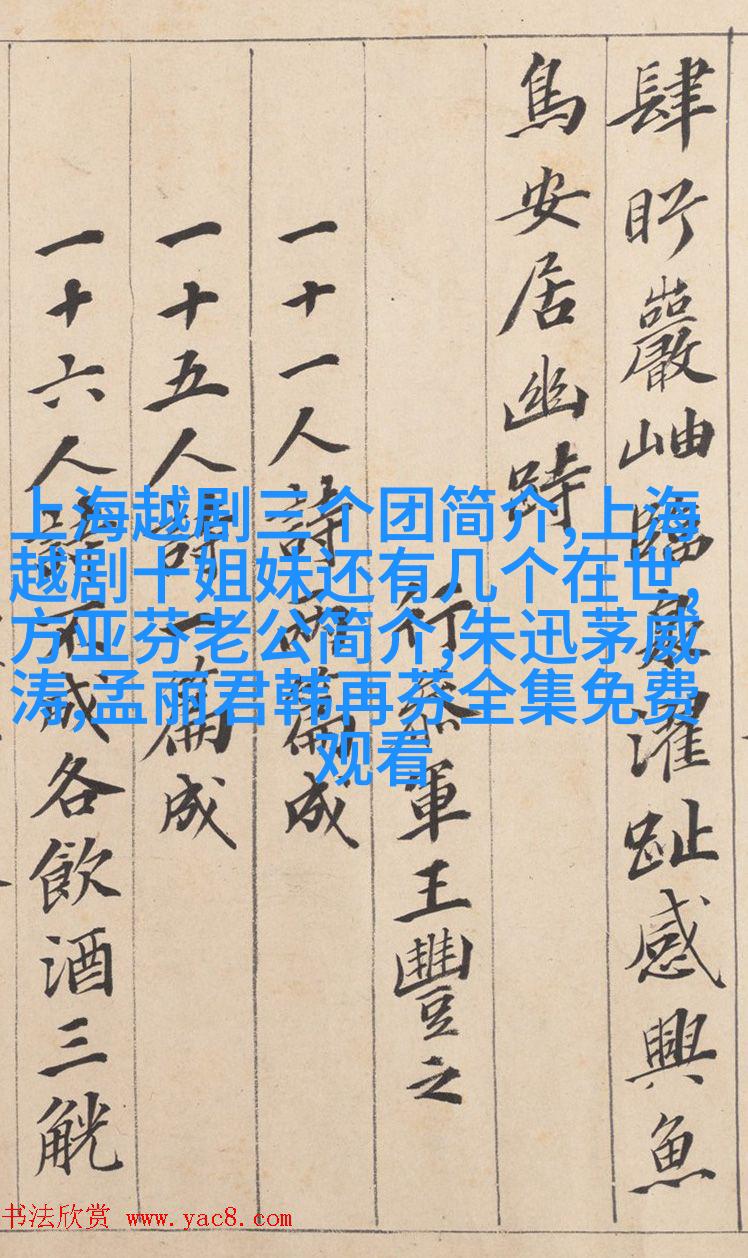 肆盻巖岫臨泉濯趾感興魚
鳥安居幽跱
行參軍王豐之
一十一人詩兩篇成
一十五人詩一篇成
一十六人詩不成各飲酒三觥
上海越剧三个团简介,上海
越剧十姐妹还有几个在世,
方亚芬老公简介,朱迅茅威
涛,孟丽君韩再芬全集免费
观看
书法欣赏 www.yac8.com